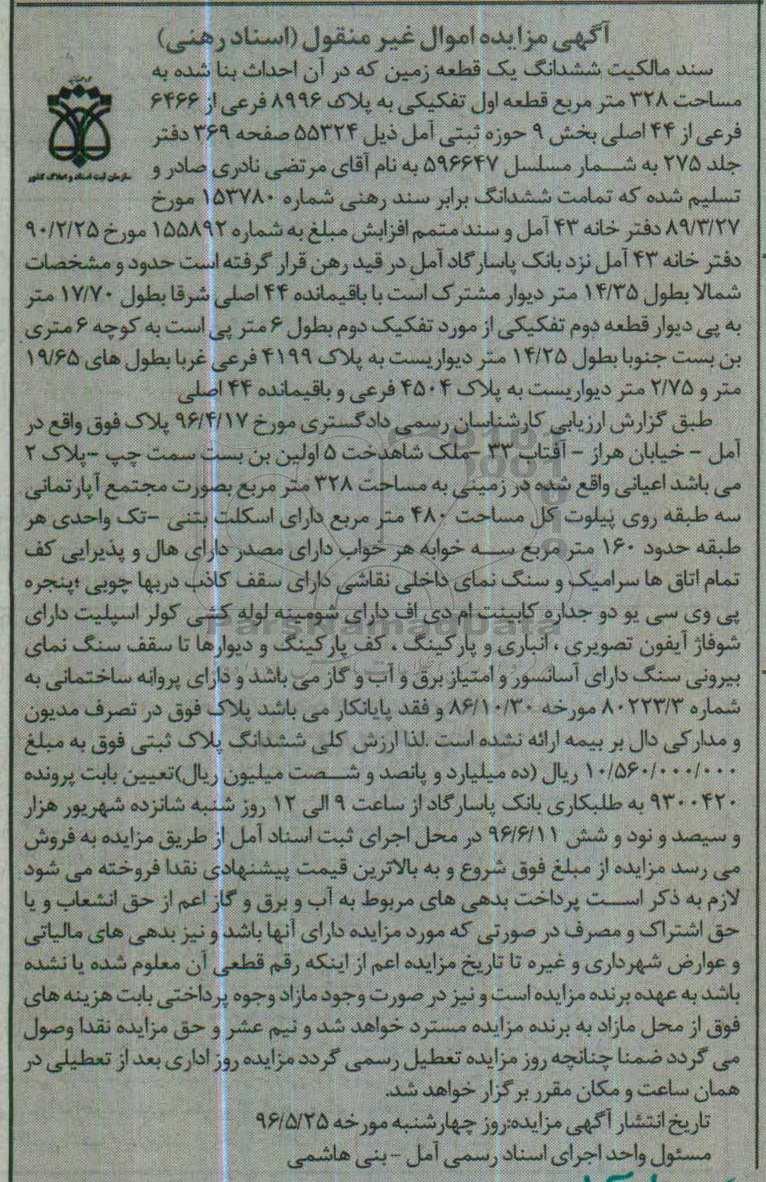 آگهی مزایده اموال غیر منقول (اسناد رهنی)
سند مالکیت ششدانگ یک قطعه زمین که در آن احداث بنا شده به
مساحت ۳۲۸ متر مربع قطعه اول تفکیکی به پلاک ۸۹۹۶ فرعی از ۶۴۶۶
فرعی از ۴۴ اصلی بخش ۹ حوزه ثبتی آمل ذیل ۵۵۳۲۴ صفحه ۳۶۹ دفتر
جلد ۲۷۵ به شمار مسلسل ۵۹۶۶۴۷ به نام آقای مرتضی نادری صادر و
سازمان ثبت اسناد و املاک کشور
تسلیم شده که تمامت ششدانگ برابر سند رهنی شماره ۱۵۳۷۸۰ مورخ
۸۹/۳/۲۷ دفتر خانه ۴۳ آمل و سند متمم افزایش مبلغ به شماره ۱۵۵۸۹۲ مورخ ۹۰/۲/۲۵
دفتر خانه ۴۳ آمل نزد بانک پاسارگاد آمل در قید رهن قرار گرفته است حدود و مشخصات
شمالا بطول ۱۴/۳۵ متر دیوار مشترک است با باقیمانده ۴۴ اصلی شرقا بطول ۱۷/۷۰ متر
به پی دیوار قطعه دوم تفکیکی از مورد تفکیک دوم بطول ۶ متر پی است به کوچه ۶ متری
بن بست جنوبا بطول ۱۴/۲۵ متر دیواریست به پلاک ۴۱۹۹ فرعی غربا بطول های ۱۹/۶۵
متر و ۲/۷۵ متر دیواریست به پلاک ۴۵۰۴ فرعی و باقیمانده ۴۴ اصلی
طبق گزارش ارزیابی کارشناسان رسمی دادگستری مورخ ۹۶/۴/۱۷ پلاک فوق واقع در
آمل - خیابان هراز - آفتاب ۳۳ -ملک شاهدخت ۵ اولین بن بست سمت چپ -پلاک ۲
می باشد اعیانی واقع شده در زمینی به مساحت ۳۲۸ متر مربع بصورت مجتمع آپارتمانی
سه طبقه روی پیلوت کل مساحت ۴۸۰ متر مربع دارای اسکلت بتنی -تک واحدی هر
طبقه حدود ۱۶۰ متر مربع سه خوابه هر خواب دارای مصدر دارای هال و پذیرایی کف
تمام اتاق ها سرامیک و سنگ نمای داخلی نقاشی دارای سقف کاذب دربها چوبی ؛پنجره
پی وی سی یو دو جداره کابینت ام دی اف دارای شومینه لوله کشی کولر اسپلیت دارای
شوفاژ آیفون تصویری ، انباری و پارکینگ ، کف پارکینگ و دیوارها تا سقف سنگ نمای
بیرونی سنگ دارای آسانسور و امتیاز برق و آب و گاز می باشد و دارای پروانه ساختمانی به
شماره ۸۰۲۲۳/۳ مورخه ۸۶/۱۰/۳۰ و فقد پایانکار می باشد پلاک فوق در تصرف مدیون
و مدارکی دال بر بیمه ارائه نشده است .لذا ارزش کلی ششدانگ پلاک ثبتی فوق به مبلغ
۱۰/۵۶۰/۰۰۰/۰۰۰ ریال (ده میلیارد و پانصد و شصت میلیون ریال)تعیین بابت پرونده
۹۳۰۰۴۲۰ به طلبکاری بانک پاسارگاد از ساعت ۹ الی ۱۲ روز شنبه شانزده شهریور هزار
و سیصد و نود و شش ۹۶/۶/۱۱ در محل اجرای ثبت اسناد آمل از طریق مزایده به فروش
می رسد مزایده از مبلغ فوق شروع و به بالاترین قیمت پیشنهادی نقدا فروخته می شود
لازم به ذکر است پرداخت بدهی های مربوط به آب و برق و گاز اعم از حق انشعاب و یا
حق اشتراک و مصرف در صورتی که مورد مزایده دارای آنها باشد و نیز بدهی های مالیاتی
و عوارض شهرداری و غیره تا تاریخ مزایده اعم از اینکه رقم قطعی آن معلوم شده یا نشده
باشد به عهده برنده مزایده است و نیز در صورت وجود مازاد وجوه پرداختی بابت هزینه های
فوق از محل مازاد به برنده مزایده مسترد خواهد شد و نیم عشر و حق مزایده نقدا وصول
می گردد ضمنا چنانچه روز مزایده تعطیل رسمی گردد مزایده روز اداری بعد از تعطیلی در
همان ساعت و مکان مقرر برگزار خواهد شد.
تاریخ انتشار آگهی مزایده:روز چهارشنبه مورخه ۹۶/۵/۲۵
مسئول واحد اجرای اسناد رسمی آمل - بنی هاشمی